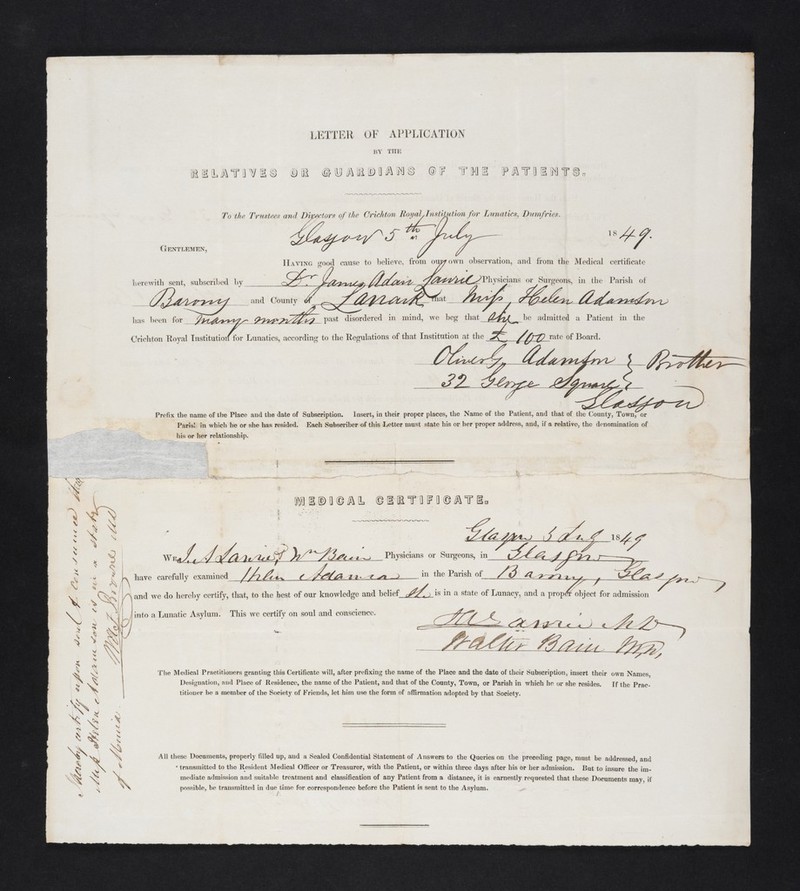 LETTER OF APPLICATION
BY THE
RELATIVES OR GUARDIANS OF THE PATIENTS.
To the Trustees and Directors of the Crichton Royal Institution for Lunatics, Dumfries.
Glasgow 5th July 1849.
GENTLEMEN,
HAVING good cause to believe, from our own observation, and from the Medical certificate
herewith sent, subscribed by Dr. James Adair Lawrie Physicians or Surgeons, in the Parish of
Barony and County of Lanark that Miss, Helen Adamson
has been for many months past disordered in mind, we beg that she be admitted a Patient in the
Crichton Royal Institution for Lunatics, according to the Regulations of that Institution at the £100 rate of Board.
Adamson } Brother
32 George Square
Glasgow
Prefix the name of the Place and the date of Subscription. Insert, in their proper places, the Name of the Patient, and that of the County, Town, or
Parish in which he or she has resided. Each Subscriber of this Letter must state his or her proper address, and, if a relative, the denomination of
his or her relationship.
MEDICAL CERTIFICATE.
Glasgow 5 1849
WE J. A Lawrie & Wm Bain Physicians or Surgeons, in Glasgow
have carefully examined Helen Adamson in the Parish of Barony, Glasgow
and we do hereby certify, that, to the best of our knowledge and belief she is in a state of Lunacy, and a proper object for admission
into a Lunatic Asylum. This we certify on soul and conscience.
J A Lawrie M D
Walter Bain M.D.
The Medical Practitioners granting this Certificate will, after prefixing the name of the Place and the date of their Subscription, insert their own Names,
Designation, and Place of Residence, the name of the Patient, and that of the County, Town, or Parish in which he or she resides. If the Prac-
titioner be a member of the Society of Friends, let him use the form of affirmation adopted by that Society.
All these Documents, properly filled up, and a Sealed Confidential Statement of Answers to the Queries on the preceding page, must be addressed, and
transmitted to the Resident Medical Officer or Treasurer, with the Patient, or within three days after his or her admission. But to insure the im-
mediate admission and suitable treatment and classification of any Patient from a distance, it is earnestly requested that these Documents may, if
possible, be transmitted in due time for correspondence before the Patient is sent to the Asylum.
I hereby certify upon soul & conscience that
Miss Helen Adamson is in a state
of Mania